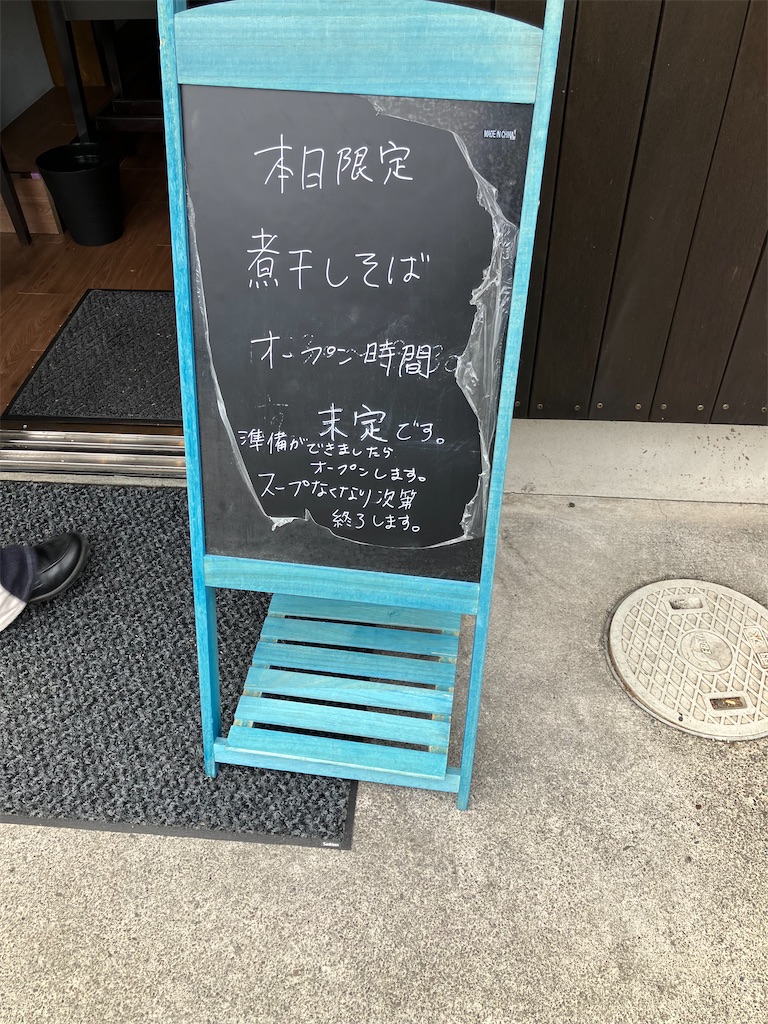 MADE IN CHINA
本日限定
煮干しそば
オープン時間
未定です。
準備ができましたら
オープンします。
スープなくなり次第
終了します。